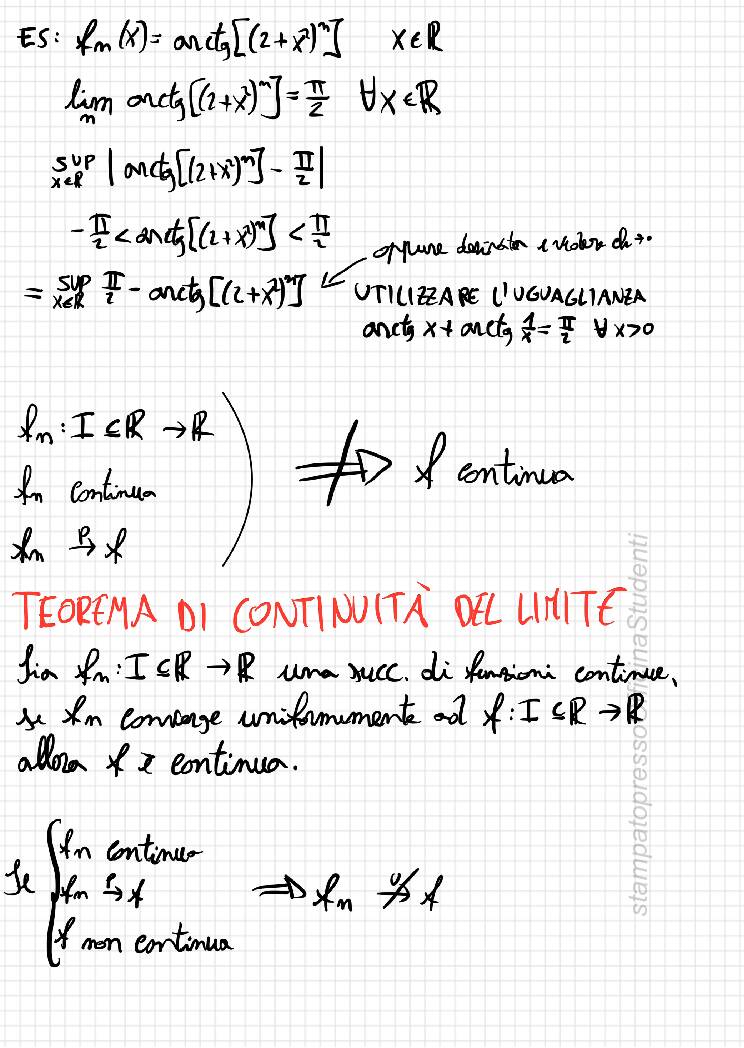 ES: fn(x) = arctg[(2+x²)ⁿ] x∈ℝ
lim n arctg[(2+x²)ⁿ] = π/2 ∀x∈ℝ
sup x∈ℝ | arctg[(2+x²)ⁿ] - π/2 |
-π/2 < arctg[(2+x²)ⁿ] < π/2
oppure e
= sup x∈ℝ π/2 - arctg[(2+x²)ⁿ]
UTILIZZARE L'UGUAGLIANZA
arctg x + arctg 1/x = π/2 ∀x>0
fn: I ⊆ ℝ → ℝ
fn continua
fn →ᴾ f
⇏ f continua
TEOREMA DI CONTINUITÀ DEL LIMITE
Sia fn: I ⊆ ℝ → ℝ una succ. di funzioni continue,
se fn converge uniformemente ad f: I ⊆ ℝ → ℝ
allora f è continua.
Se { fn continua
fn →ᴾ f
f non continua
⇒ fn ↛ᵁ f
stampatopresso
Studenti